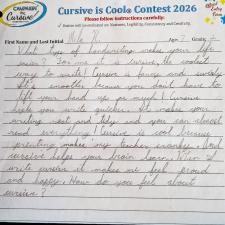 CAMPAIGN FOR Cursive
Cursive is Cool® Contest 2026
Please follow instructions carefully:
Entries will be evaluated on Neatness, Legibility, Consistency and Creativity.
First Name and Last Initial Age: 7
What type of handwriting makes your life
easier? For me it is cursive, the coolest
way to write! Cursive is fancy and swirly.
It is smoother because you don't have to
lift your hand up so much! Cursive
helps you write quicker. It makes your
writing neat and tidy and you can almost
read everything! Cursive is cool because
printing makes my teacher cranky. And
cursive helps your brain learn. When I
write cursive it makes me feel proud
and happy. How do you feel about
cursive?